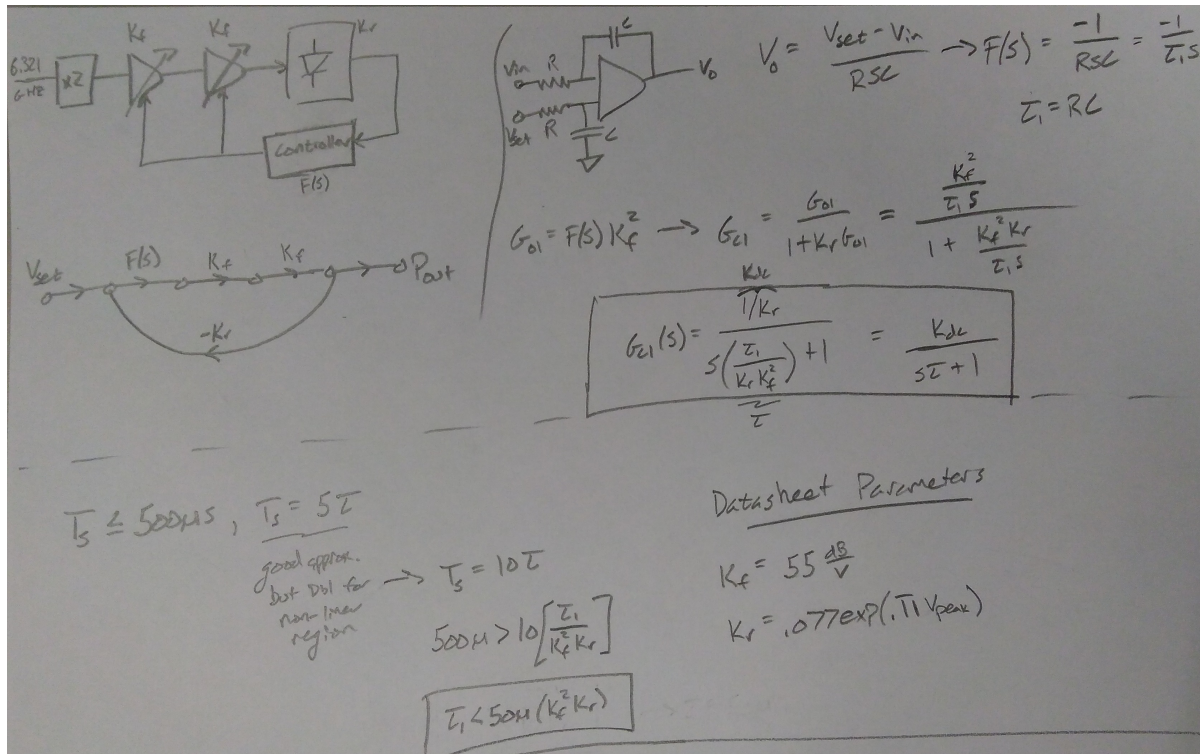 Kf Kf Kr
6.321 GHz
x2
Controller
F(s)
Vset F(s) Kf Kf Pout
-Kr
C
Vin R
Vset R C
Vo
Vo = (Vset - Vin) / RSC → F(s) = -1 / RSC = -1 / τ₁s
τ₁ = RC
Gol = F(s) Kf² → Gcl = Gol / (1 + Kr Gol) = (Kf² / τ₁s) / (1 + Kf² Kr / τ₁s)
Kdc
Gcl(s) = (1/Kr) / (s(τ₁ / (Kr Kf²)) + 1) = Kdc / (sτ + 1)
τ
Ts ≤ 500μs, Ts = 5τ
good approx.
but Dbl for → Ts = 10τ
non-linear
region
500μ > 10[τ₁ / (Kf² Kr)]
τ₁ < 50μ (Kf² Kr)
Datasheet Parameters
Kf = 55 dB/V
Kr = .077exp(. Vpeak)